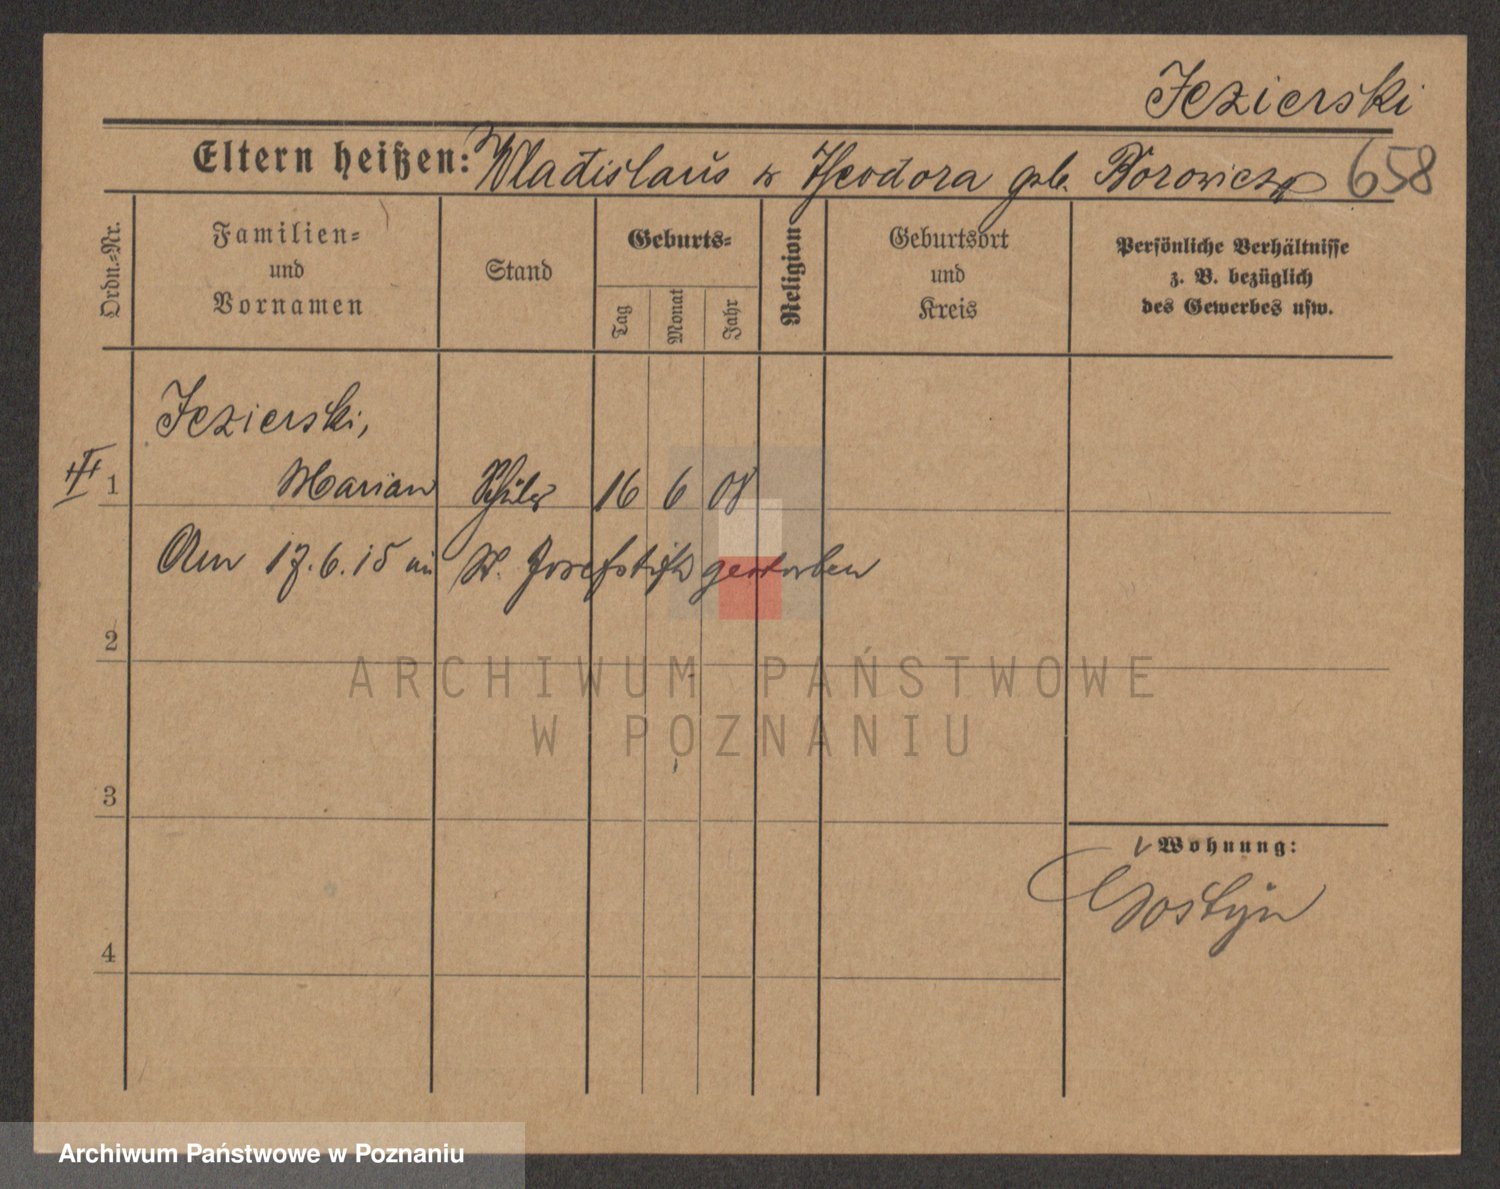 Jezierski
Eltern heißen: Wladislaus u Theodora geb. Borowicz
658
Ordn.=Nr.
Familien=
und
Vornamen
Stand
Geburts=
Tag
Monat
Jahr
Religion
Geburtsort
und
Kreis
Persönliche Verhältnisse
z. B. bezüglich
des Gewerbes usw.
Jezierski,
1 Marian Schüler 16 6 08
Am 17.6.15 im St. Josefstift gestorben
2
ARCHIWUM PAŃSTWOWE
W POZNANIU
3
Wohnung:
Gostyn
4
Archiwum Państwowe w Poznaniu